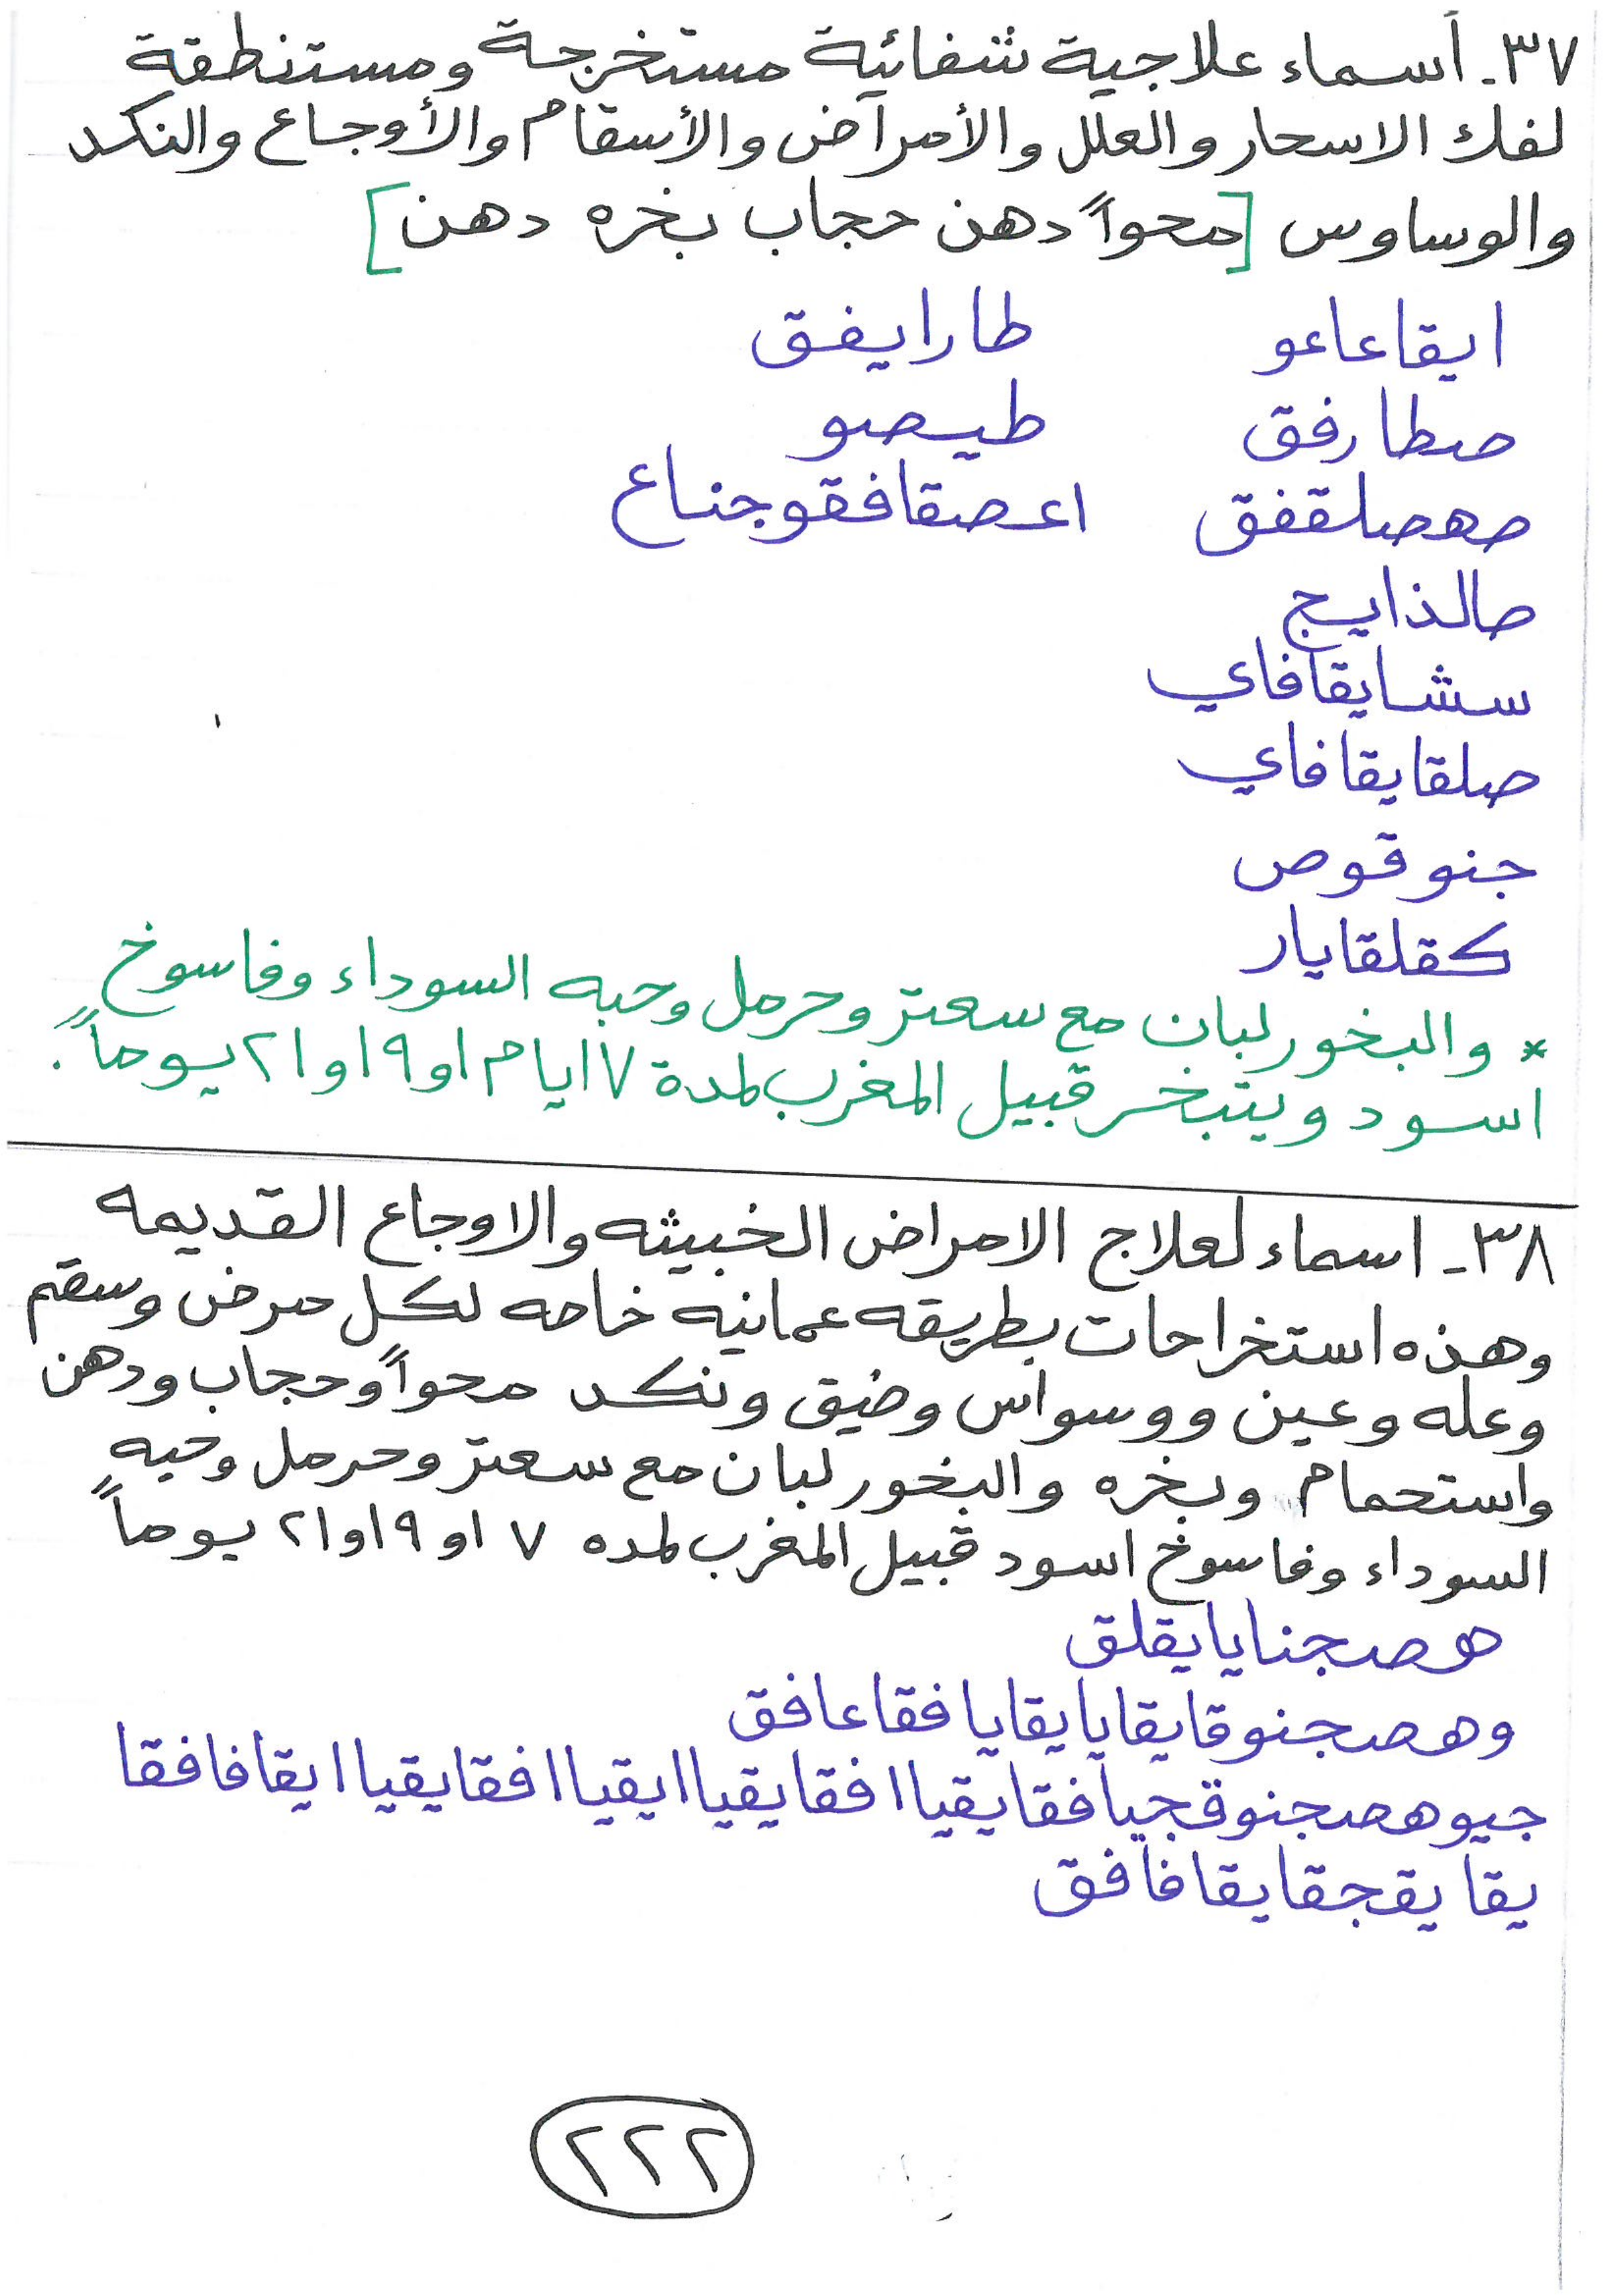 ٣٧ـ أسماء علاجية شفائية مستخرجة ومستنطقة
لفك الاسحار والعلل والأمراض والأسقام والأوجاع والنكد
والوساوس [محواً دهن حجاب بخره دهن]
ايقاعاعو طارايفق
صطارفق طيصو
صهصلقفق اعصقافقوجناع
صالذايج
سشايقافاي
صلقايقافاي
جنوقوص
كقلقايار
* والبخور لبان مع سعتر وحرمل وحبه السوداء وفاسوخ
اسود ويتبخر قبيل المغرب لمدة ٧ ايام او ١٩ او ٢١ يوماً.
٣٨ـ اسماء لعلاج الامراض الخبيثه والاوجاع القديمه
وهذه استخراحات بطريقه عمانيه خاصه لكل مرض وسقم
وعله وعين ووسواس وضيق ونكد محواً وحجاب ودهن
واستحمام وبخره والبخور لبان مع سعتر وحرمل وحبه
السوداء وفاسوخ اسود قبيل المغرب لمده ٧ او ١٩ او ٢١ يوماً
هصجنايايقلق
وهصجنوقايقايايقايافقاعافق
جيوهصجنوقجيافقايقياافقايقياايقياافقايقياايقافافقا
يقايقجقايقافافق
٢٢٢